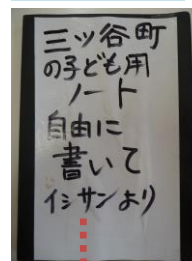 三ッ谷町
の子ども用
ノート
自由に
書いて
イシサンより